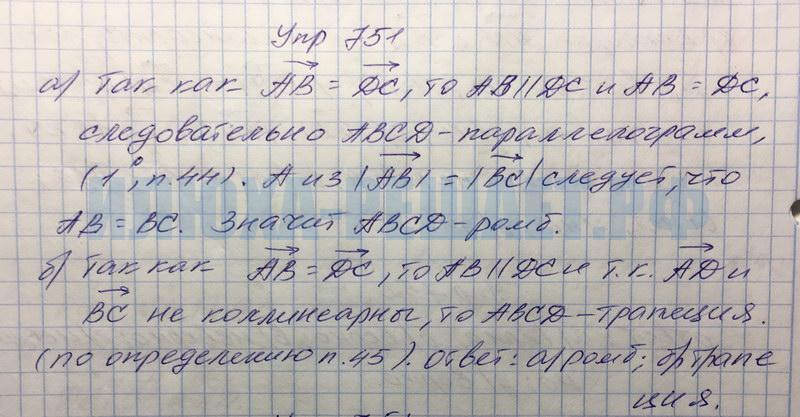 Упр 751
а) Так как AB = DC, то AB || DC и AB = DC,
следовательно ABCD - параллелограмм,
(1°, п.44). А из |AB| = |BC| следует, что
AB = BC. Значит ABCD - ромб.
б) Так как AB = DC, то AB || DC и т.к. AD и
BC не коллинеарны, то ABCD - трапеция.
(по определению п.45). ответ: а) ромб; б) трапе
ция.